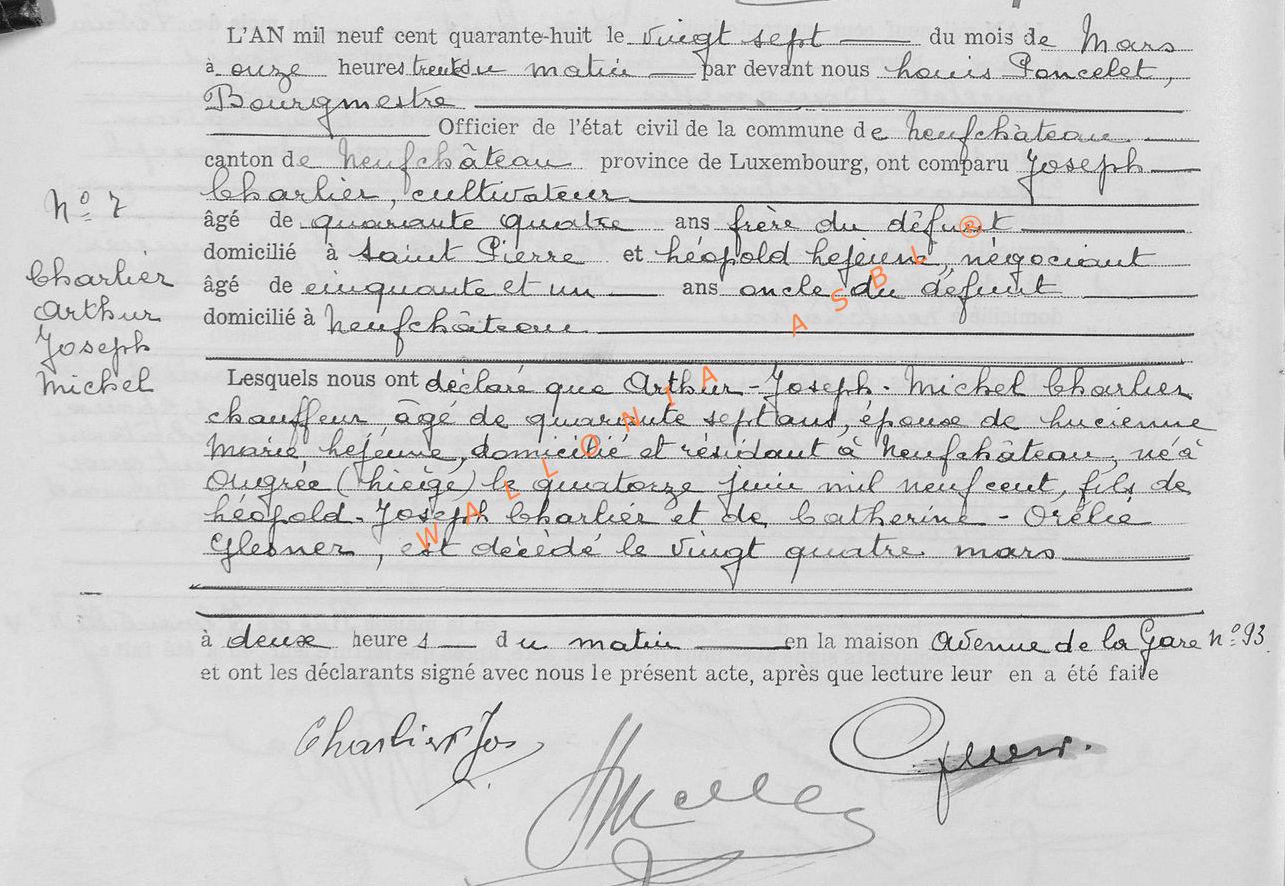 L'AN mil neuf cent quarante-huit le vingt sept du mois de Mars
à onze heures trente du matin par devant nous Louis Poncelet,
Bourgmestre
Officier de l'état civil de la commune de Neufchâteau
canton de Neufchâteau province de Luxembourg, ont comparu Joseph
Charlier, cultivateur
âgé de quarante quatre ans frère du défunt
domicilié à Saint Pierre et Léopold Lejeune, négociant
âgé de cinquante et un ans oncle du défunt
domicilié à Neufchâteau
N° 7
Charlier
Arthur
Joseph
Michel
Lesquels nous ont déclaré que Arthur-Joseph-Michel Charlier
chauffeur, âgé de quarante sept ans, épouse de Lucienne
Marie Lejeune, domicilié et résidant à Neufchâteau, né à
Ougrée (Liège) le quatorze juin mil neuf cent, fils de
Léopold-Joseph Charlier et de Catherine-Orélie
Glesner, est décédé le vingt quatre mars
à deux heures du matin en la maison Avenue de la Gare n° 93.
et ont les déclarants signé avec nous le présent acte, après que lecture leur en a été faite
Charlier Jos
WALLONIA ASBL ®